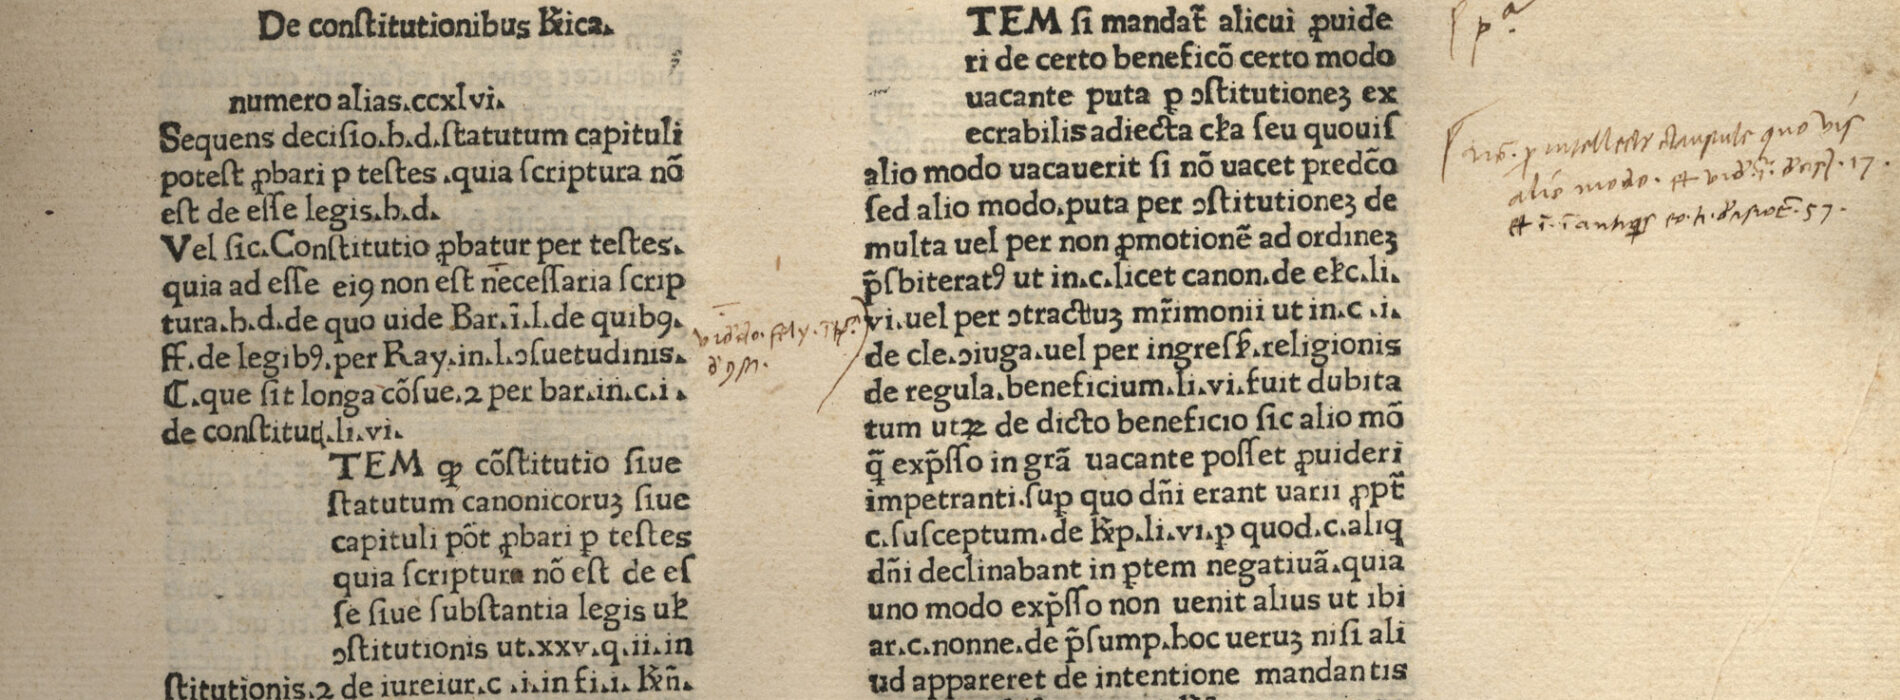 De constitutionibus Rɫica.
numero alias.ccxlvi.
Sequens decisio.h.d.ſtatutum capituli
poteſt ꝓbari p teſtes .quia ſcriptura nō
eſt de eſſe legis.h.d.
Vel ſic.Conſtitutio ꝓbatur per teſtes.
quia ad eſſe eiꝰ non eſt neceſſaria ſcrip
tura.h.d.de quo uide Bar.ī.l.de quibꝰ.
ff.de legibꝰ.per Ray.in.l.ↄſuetudinis.
C.que ſit longa cōſue.⁊ per bar.in.c.i.
de conſtitut̄.li.vi.
TEM ꝙ cōſtitutio ſiue
ſtatutum canonicoruꝫ ſiue
capituli pōt ꝓbari ꝑ teſtes
quia ſcriptura nō eſt de eſ
ſe ſiue ſubſtantia legis uł
ↄſtitutionis ut.xxv.q.ii.in
ſtitutionis.⁊ de iureiur.c.i.in fi.i.
TEM ſi mandat̄ alicui ꝓuide
ri de certo beneficō certo modo
uacante puta ꝑ ↄſtitutioneꝫ ex
ecrabilis adiecta cła ſeu quouiſ
alio modo uacauerit ſi nō uacet predc̄o
ſed alio modo.puta per ↄſtitutioneꝫ de
multa uel per non ꝓmotionē ad ordineꝫ
p̄ſbiteratꝰ ut in.c.licet canon.de ełc.li.
vi.uel per ↄtractuꝫ mr̄imonii ut in.c.i.
de cle.ↄiuga.uel per ingreſẜ.religionis
de regula.beneficium.li.vi.fuit dubita
tum utꝝ de dicto beneficio ſic alio mō
q̄ exp̄ſſo in grā uacante poſſet ꝓuideri
impetranti.ſup quo dn̄i erant uarii ꝓpt̄
c.ſuſceptum.de Rɫp.li.vi.ꝑ quod.c.aliq
dn̄i declinabant in ꝑtem negatiuā.quia
uno modo exp̄ſſo non uenit alius ut ibi
ar.c.nonne.de p̄ſump.hoc ueruꝫ niſi ali
ud appareret de intentione mandantis
pª.
alio modo.